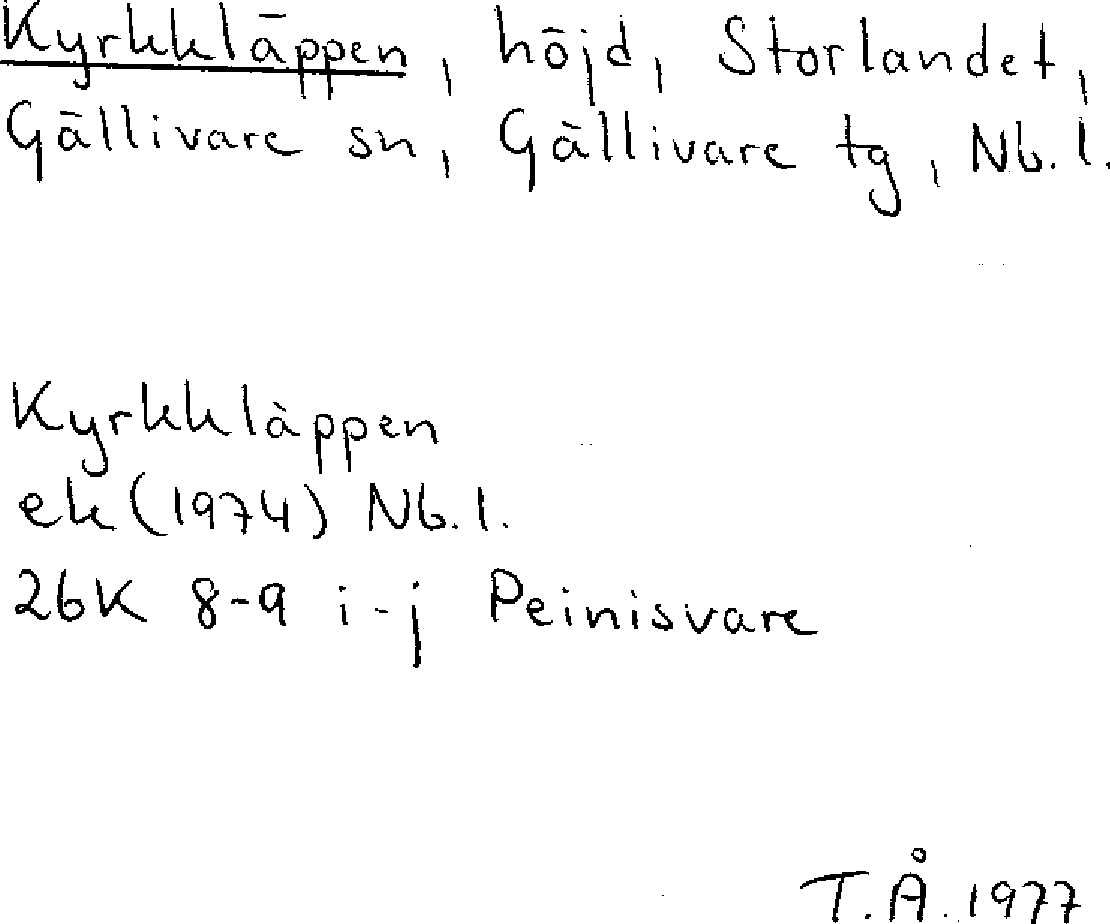 Kyrkkläppen, höjd, Storlandet,
Gällivare sn, Gällivare tg, Nb. l.
Kyrkkläppen
ek (1974) Nb. l.
26K 8-9 i-j Peinisvare
T.Å. 1977